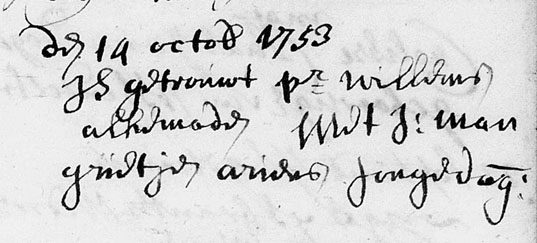 den 14 octob 1753
Is getrouwt pr willems
alkemaden Met J: man
grietjen aries jongedog: